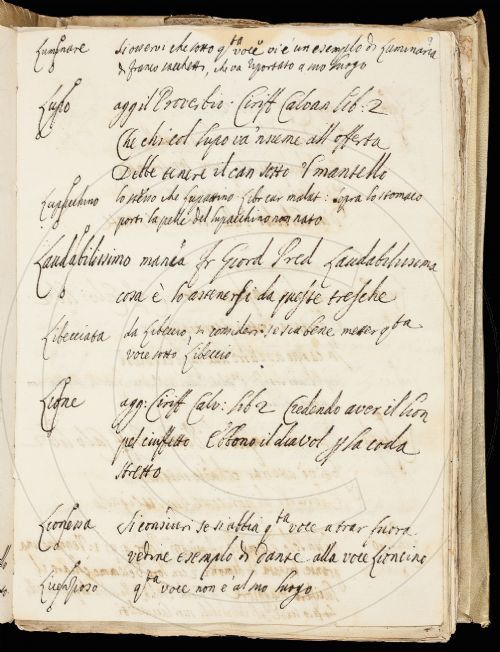 Luminare si osservi che sotto q.ta voce vi è un esempio di Luminaria
di franco sacchetti, che va riportato a suo luogo
Lupo agg il Proverbio: Ciriff Calvan lib: 2
Che chi col lupo va 'nsieme all'offerta
Debbe tenere il can sotto 'l mantello
Lupacchino lo stesso che Lupattino Libr cur malat: sopra lo stomaco
porti la pelle del lupacchino non nato
Laudabilissimo manca fr Giord Pred Laudabilissima
cosa è lo astenersi da queste tresche
Libecciata da Libeccio, si consideri se sia bene metter q.ta
voce sotto Libeccio
Lione agg: Ciriff Calv: lib 2 Credendo aver il lion
pel ciuffetto Ebbono il diavol p la coda
stretto
Lionessa si consideri se si abbia q.ta voce a trar fuora
vedine esempio di Dante alla voce Lioncino
q.ta voce non è al suo luogo